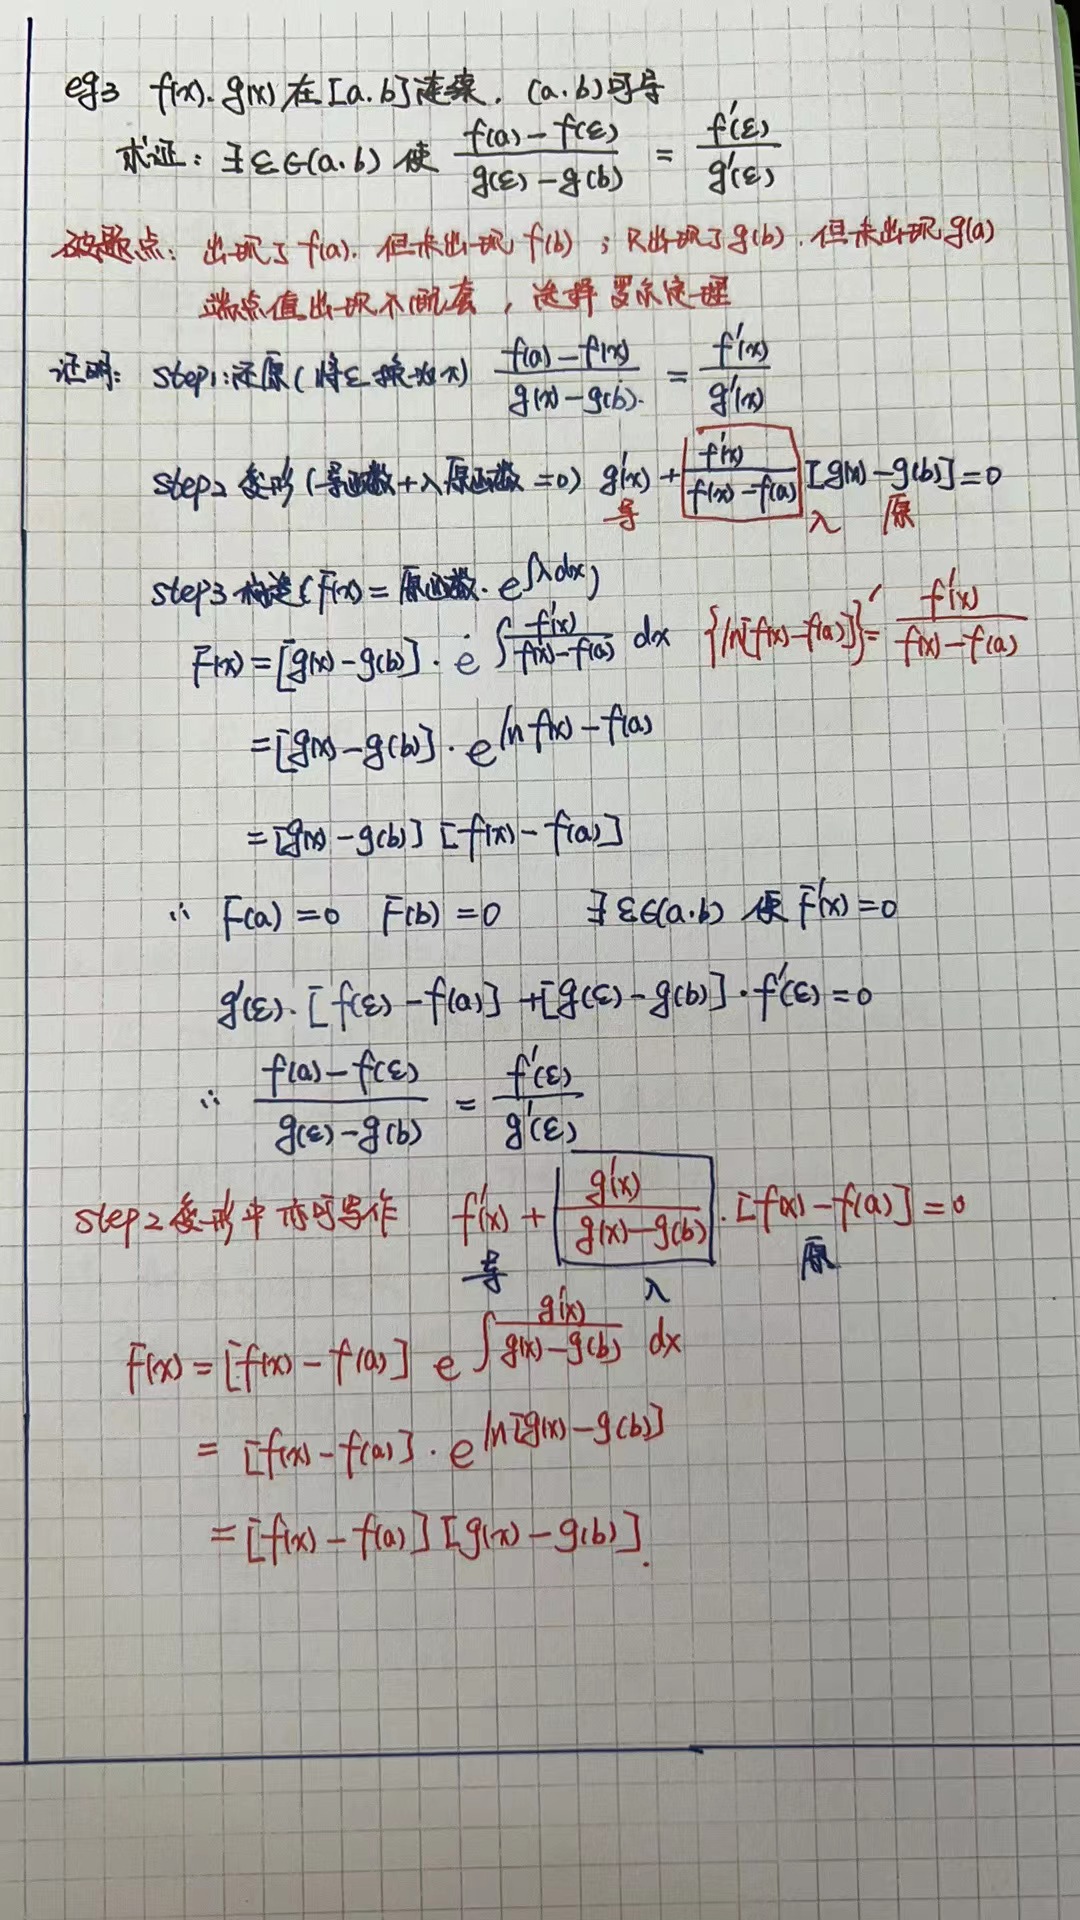 eg3 f(x). g(x) 在[a.b]连续. (a.b)可导
求证: ∃ε∈(a.b) 使 (f(a)-f(ε))/(g(ε)-g(b)) = f'(ε)/g'(ε)
破题点: 出现了 f(a). 但未出现 f(b) ; 只出现了 g(b). 但未出现 g(a)
端点值出现不配套, 选择罗尔定理
证明: step1:还原(将ε换为x) (f(a)-f(x))/(g(x)-g(b)) = f'(x)/g'(x)
step2 变形(导函数+λ原函数=0) g'(x) + f'(x)/(f(x)-f(a)) [g(x)-g(b)]=0
导 λ 原
step3 构造(F(x)=原函数·e^∫λdx)
F(x)=[g(x)-g(b)]·e^∫f'(x)/(f(x)-f(a)) dx {ln[f(x)-f(a)]}'= f'(x)/(f(x)-f(a))
=[g(x)-g(b)]·e^ln f(x)-f(a)
=[g(x)-g(b)][f(x)-f(a)]
∵ F(a)=0 F(b)=0 ∃ε∈(a.b) 使 F'(x)=0
g'(ε)·[f(ε)-f(a)]+[g(ε)-g(b)]·f'(ε)=0
∴ (f(a)-f(ε))/(g(ε)-g(b)) = f'(ε)/g'(ε)
step2变形中亦可写作 f'(x)+ g'(x)/(g(x)-g(b)) ·[f(x)-f(a)]=0
导 λ 原
F(x)=[f(x)-f(a)] e^∫g'(x)/(g(x)-g(b)) dx
=[f(x)-f(a)]·e^ln[g(x)-g(b)]
=[f(x)-f(a)][g(x)-g(b)].